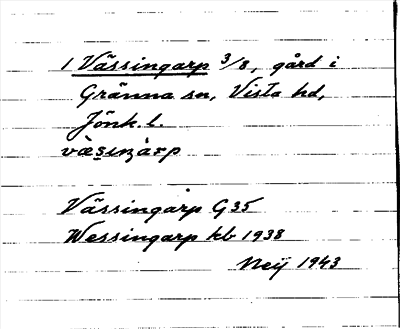 1 Vässingarp 3/8, gård i
Gränna sn, Vista hd,
Jönk. l.
Vässingarp G35
Wessingarp kb 1938
Neij 1943